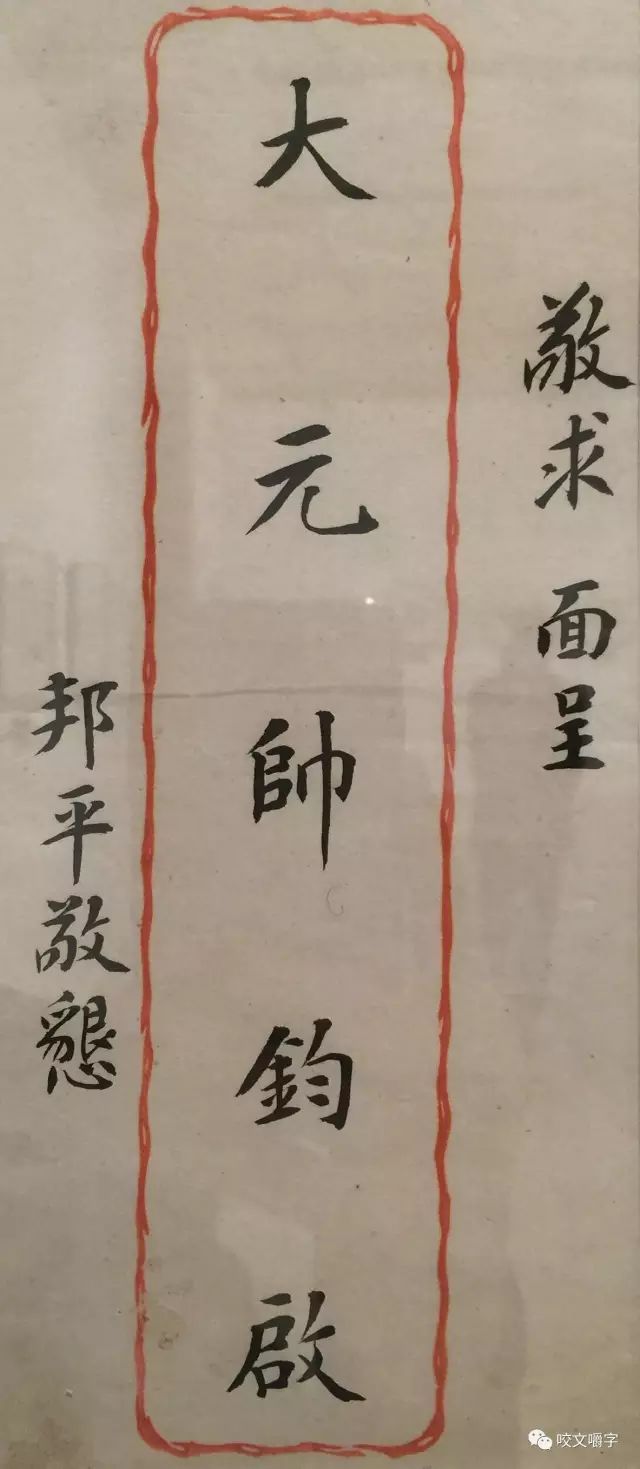 敬求 面呈
大元帥鈞啟
邦平敬懇
咬文嚼字